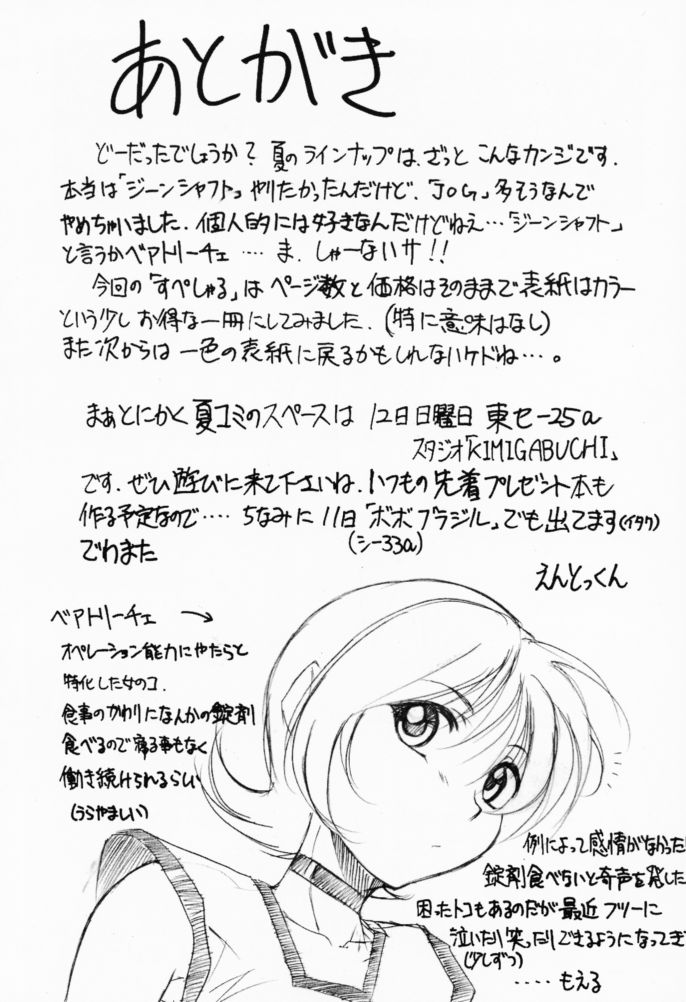 あとがき
どーだったでしょうか？ 夏のラインナップは、ざっと こんなカンジです.
本当は「ジーンシャフト」やりたかったんだけど、「JOG」多そうなんで
やめちゃいました. 個人的には好きなんだけどねえ…「ジーンシャフト」
と言うかベアトリーチェ …. ま、しゃーないサ!!
今回の「すぺしゃる」は ページ数と価格はそのままで表紙はカラー
という少し お得な一冊にしてみました.(特に意味はなし)
また次からは 一色の表紙に戻るかもしれないケドね….。
まぁとにかく 夏コミのスペースは 12日日曜日 東セー25a
スタジオ「KIMIGABUCHI」
です. ぜひ遊びに来て下さいね. いつもの 先着プレゼント本も
作る予定なので‥‥ ちなみに 11日「ボボブラジル」でも出てます(イタク)
(シー33a)
でわまた
えんとっくん
ベアトリーチェ →
オペレーション能力にやたらと
特化した女のコ.
食事のかわりになんかの錠剤
食べるので寝る事もなく
働き続けられるらしい
(うらやましい)
例によって感情がなかった
錠剤食べないと奇声を発した
困ったトコもあるのだが 最近 フツーに
泣いたり笑ったりできるようになってき
(少しずつ)
‥‥もえる